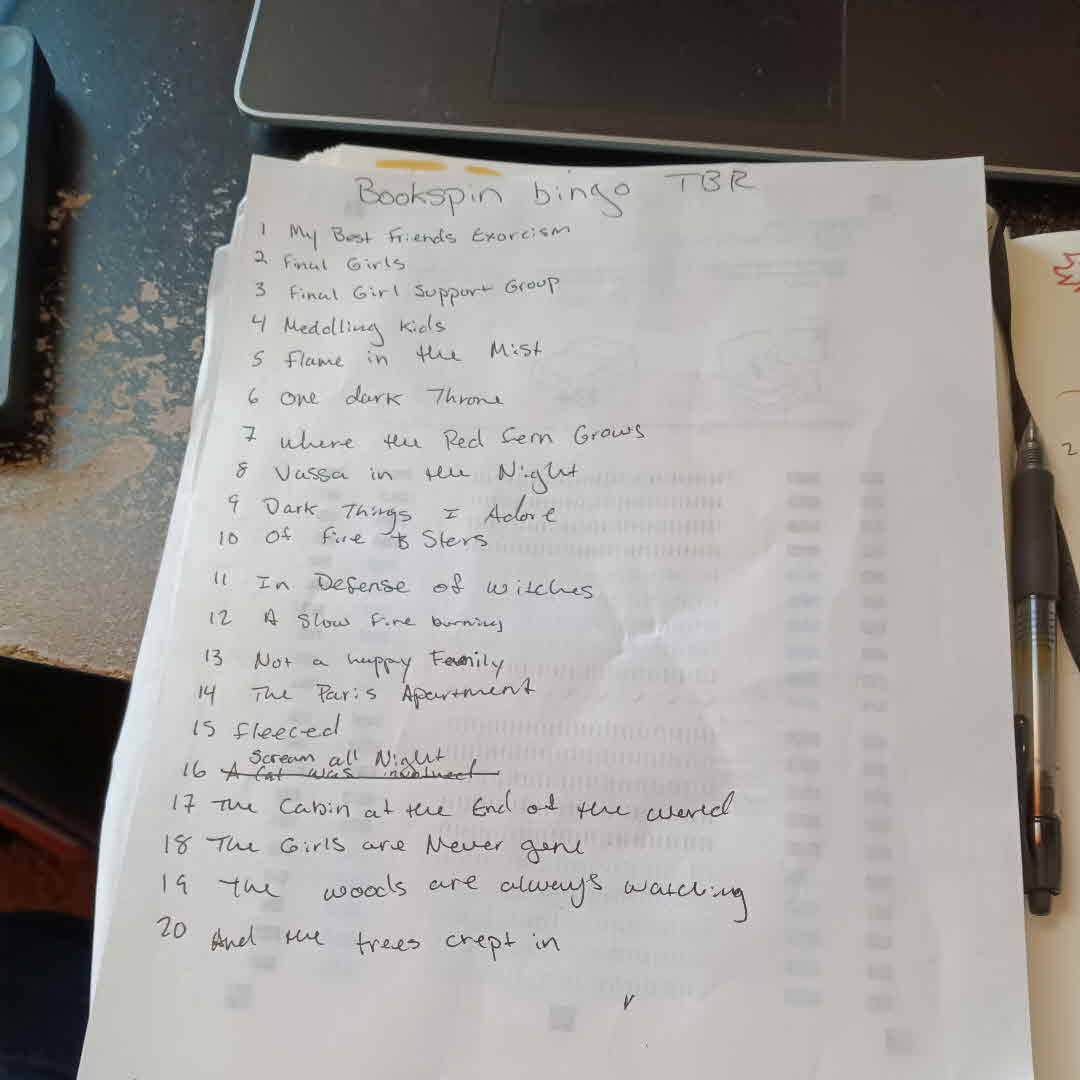 Bookspin bingo TBR
1 My Best Friends Exorcism
2 Final Girls
3 Final Girl Support Group
4 Meddling Kids
5 Flame in the Mist
6 One dark Throne
7 Where the Red fern Grows
8 Vassa in the Night
9 Dark Things I Adore
10 Of Fire & Stars
11 In Defense of witches
12 A Slow Fire burning
13 Not a happy Family
14 The Paris Apartment
15 fleeced
Scream all Night
16 A Cat was involved
17 The Cabin at the End of the world
18 The Girls are Never gone
19 the woods are always watching
20 And the trees crept in